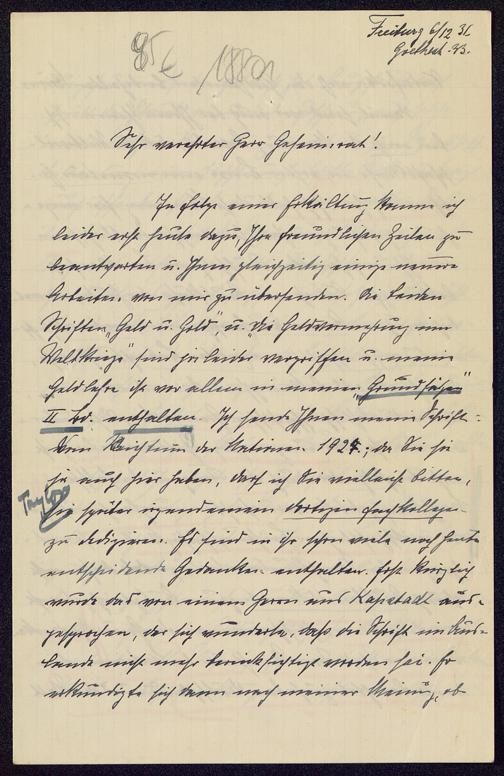 Freiburg 6/12 31
Goethest. 33.
85 €
1880
Sehr verehrter Herr Geheimrat!
In Folge einer Erkältung komme ich
leider erst heute dazu, Ihre freundlichen Zeilen zu
beantworten u. Ihnen gleichzeitig einige neuere
Arbeiten von mir zu übersenden. Die beiden
Schriften „Geld u. Gold", u. „Die Geldvermehrung im
Weltkriege" sind ja leider vergriffen u. meine
Geldlehre ist vor allem in meinen „Grundsätzen"
II Bd. enthalten. Ich sende Ihnen meine Schrift:
Vom Reichtum der Nationen 1927; da Sie sie
ja auch hier haben, darf ich Sie vielleicht bitten,
sie später irgendeinem dortigen Fachkollegen
zu dedizieren. Es sind in ihr schon viele noch heute
entscheidende Gedanken enthalten. Erst kürzlich
wurde das von einem Herrn aus Kapstadt aus-
gesprochen, der sich wunderte, daß die Schrift im Aus-
lande nicht mehr berücksichtigt worden sei. Er
erkundigte sich dann nach meiner Meinung, ob